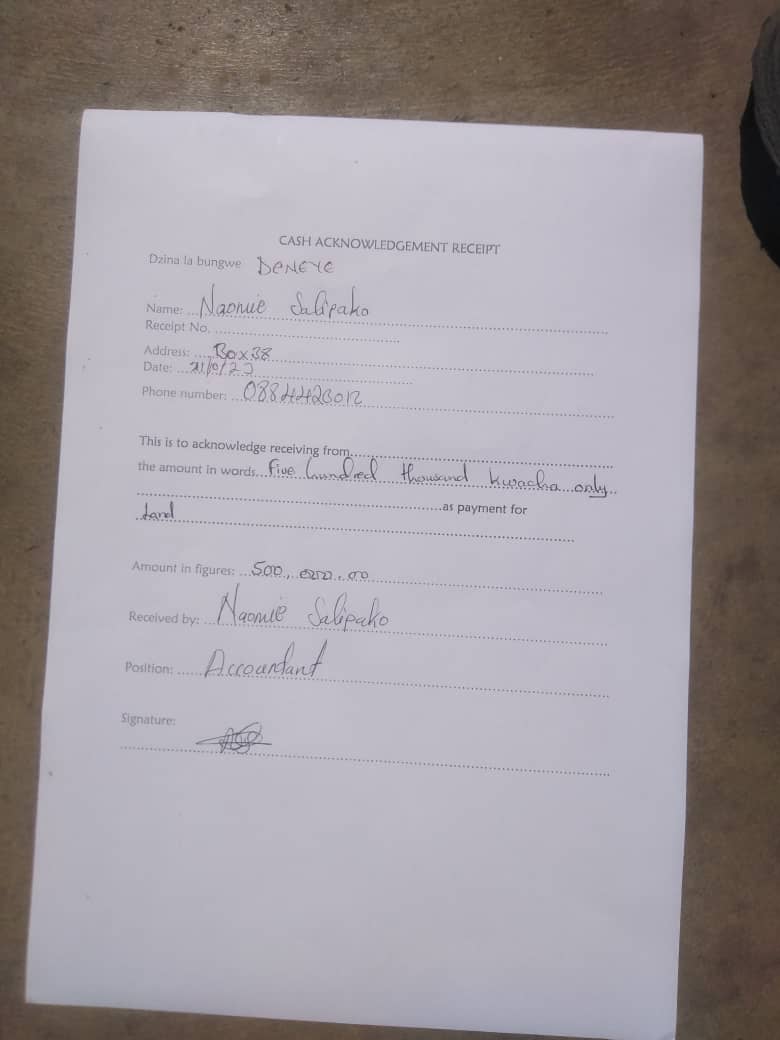 CASH ACKNOWLEDGEMENT RECEIPT
Dzina la bungwe DENEYE
Name: Naomie Salipako
Receipt No.
Address: Box 38
Date:
Phone number:
This is to acknowledge receiving from
the amount in words Five hundred thousand kwacha only
as payment for
Land
Amount in figures: 500,000.00
Received by: Naomie Salipako
Position: Accountant
Signature: